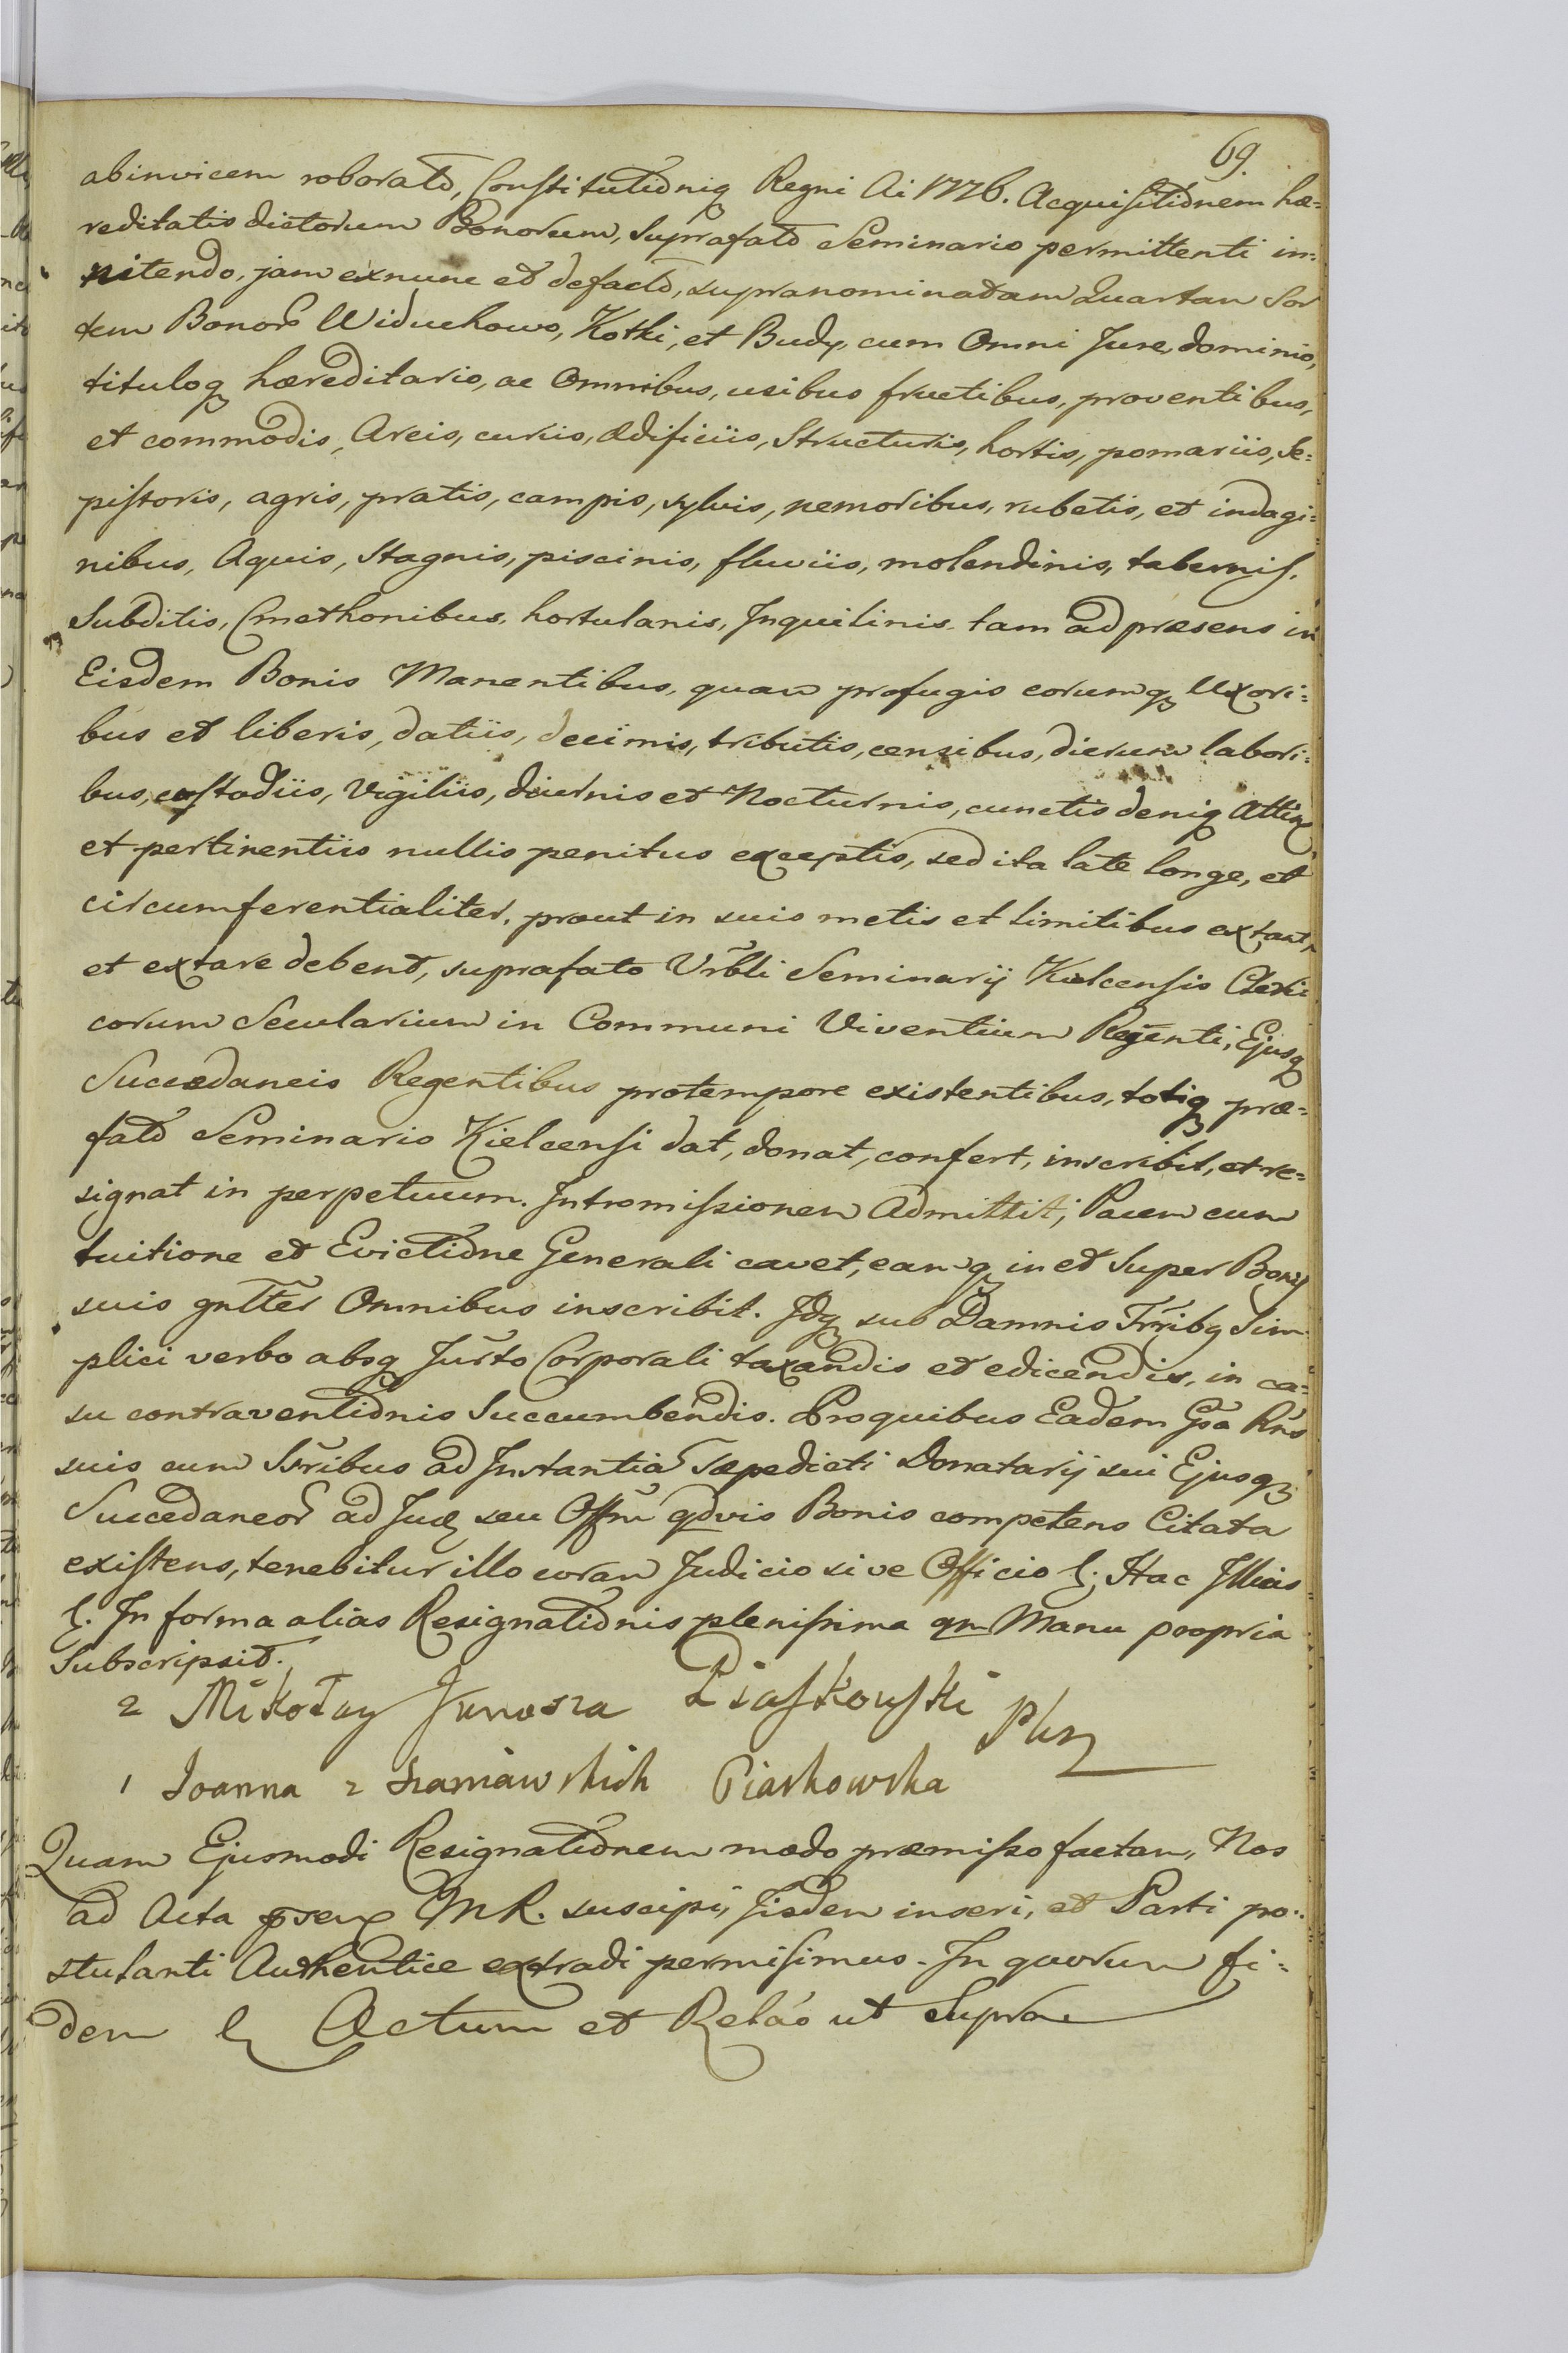 69.
abinvicem roborato, Constitutioniq Regni Ai 1776. Acquisitionem hæ=
reditatis dictorum Bonorum, suprafato Seminario permittenti in=
nitendo, jam exnunc et defacto, supranominatam Quartam Sor
tem Bonor Widuchowo, Kotki, et Budy, cum Omni Jure, dominio,
tituloq hæreditario, ac Omnibus, usibus fructibus, proventibus,
et commodis, Areis, curiis, ædificiis, Structuris, hortis, pomariis, Se=
pistoris, agris, pratis, campis, sylvis, nemoribus, rubetis, et indagi=
nibus, Aquis, Stagnis, piscinis, fluviis, molendinis, tabernis,
Subditis, Cmethonibus, hortulanis, Inquilinis tam ad præsens in
Eisdem Bonis Manentibus, quam profugis eorumq Uxori=
bus et liberis, datiis, decimis, tributis, censibus, dierum labori=
bus, custodiis, Vigiliis, diurnis et Nocturnis, cunctis deniq Attin
et pertinentiis nullis penitus exceptis, sed ita late longe, et
circumferentialiter, prout in suis metis et limitibus extant,
et extare debent, suprafato Vrbli Seminarij Kielcensis Cleri
corum Secularium in Communi Viventium Regenti, Ejusq
Succedaneis Regentibus protempore existentibus, totiq præ=
fato Seminario Kielcensi dat, donat, confert, inscribit, et re=
signat in perpetuum. Intromissionem Admittit, Pacem cum
tuitione et Evictione Generali cavet, eamq in et super Bonis
suis gnlter Omnibus inscribit. Idq sub Damnis Trribq Sim
plici verbo absq Jurto Corporali taxandis et edicendis, in ca=
su contraventionis Succumbendis. Pro quibus Eadem Gsa Rns
suis cum Ssribus ad Instantia Sæpedicti Donatarij sui Ejusq
Succedaneor ad Jud seu Offm qdvis Bonis competens Citata
existens, tenebitur illo coram Judicio sive Officio &. Hac Illius
&. In forma alias Resignationis plenissima qm Manu propria
Subscripsit.
2 Mikołay Junosza Piaskowski Pkrz
1 Joanna z Szaniawskich Piaskowska
Quam Ejusmodi Resignationem modo præmisso factam, Nos
ad Acta præns MR. suscipi, Iisdem inseri, et Parti po=
stulanti Authentice extradi permisimus. In quorum fi=
dem & Actum et Relao ut Supra